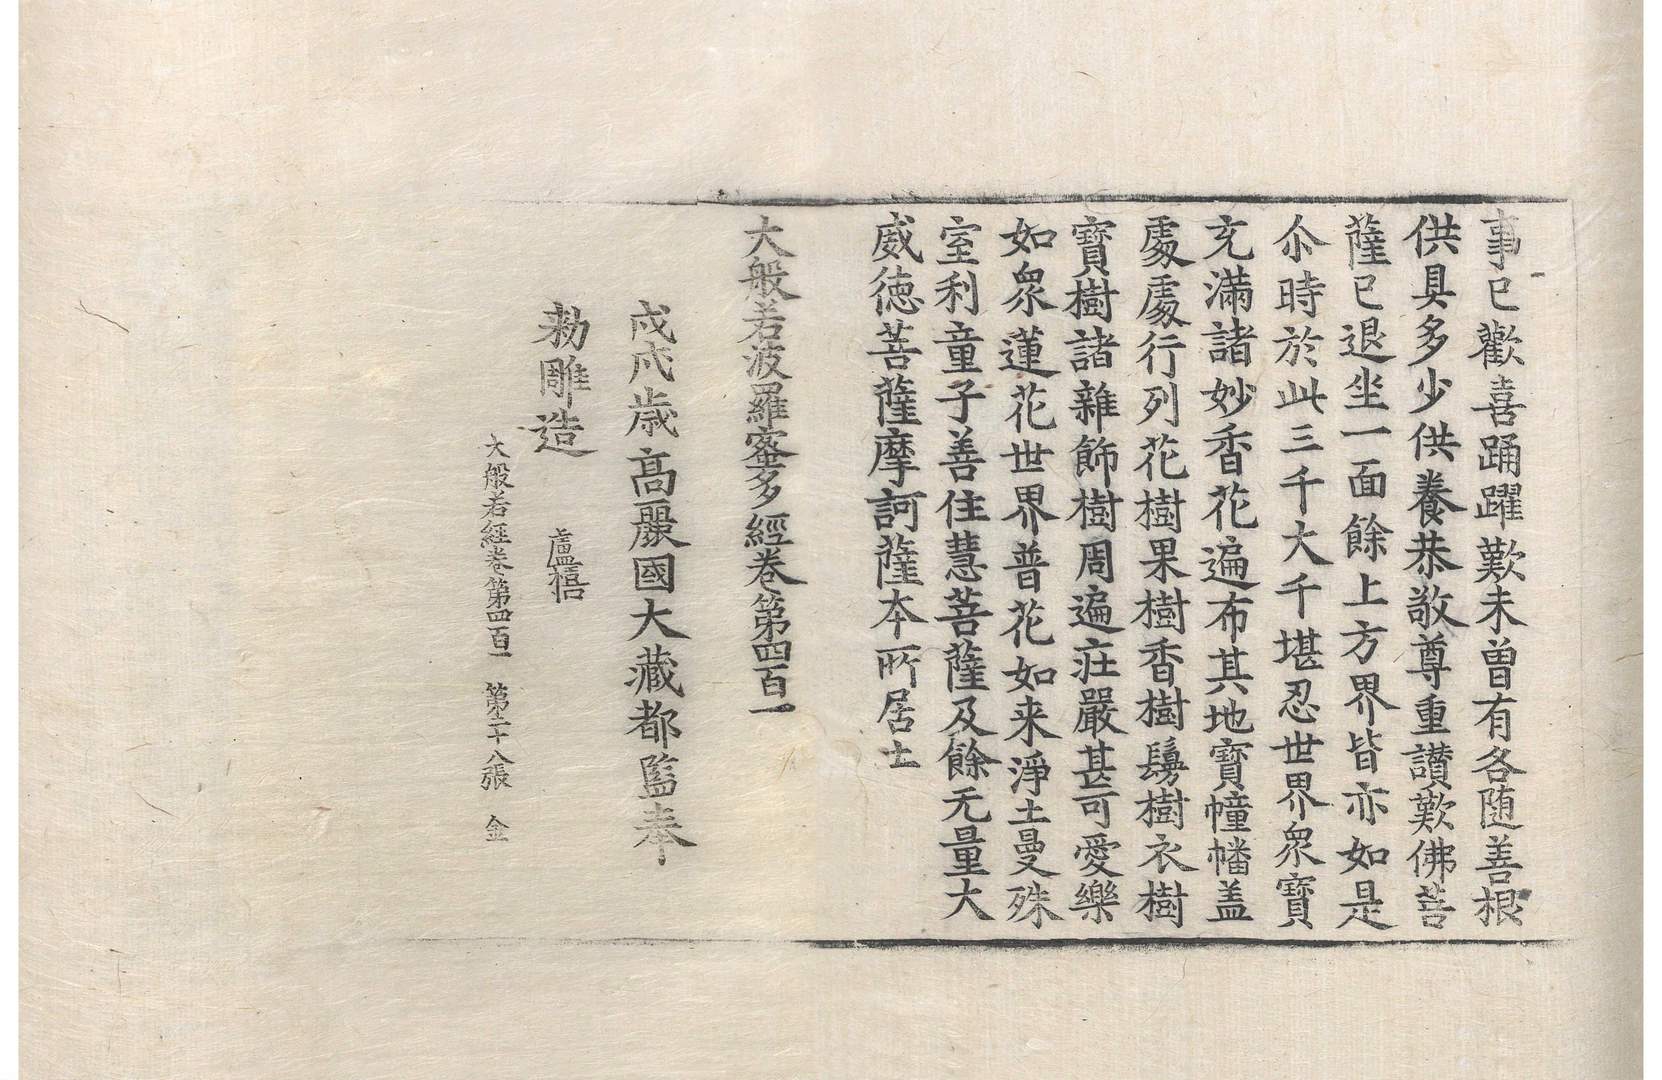 事已歡喜踊躍歎未曽有各随善根
供具多少供養恭敬尊重讃歎佛菩
薩已退坐一面餘上方界皆亦如是
尒時於此三千大千堪忍世界衆寶
充滿諸妙香花遍布其地寶幢幡盖
處處行列花樹果樹香樹鬘樹衣樹
寶樹諸雜飾樹周遍莊嚴甚可愛樂
如衆蓮花世界普花如来淨土曼殊
室利童子善住慧菩薩及餘无量大
威徳菩薩摩訶薩本所居土
大般若波羅蜜多經卷第四百一
戊戌歳高麗國大藏都監奉
勑雕造
盧禧
大般若經卷第四百一 第二十八張 金